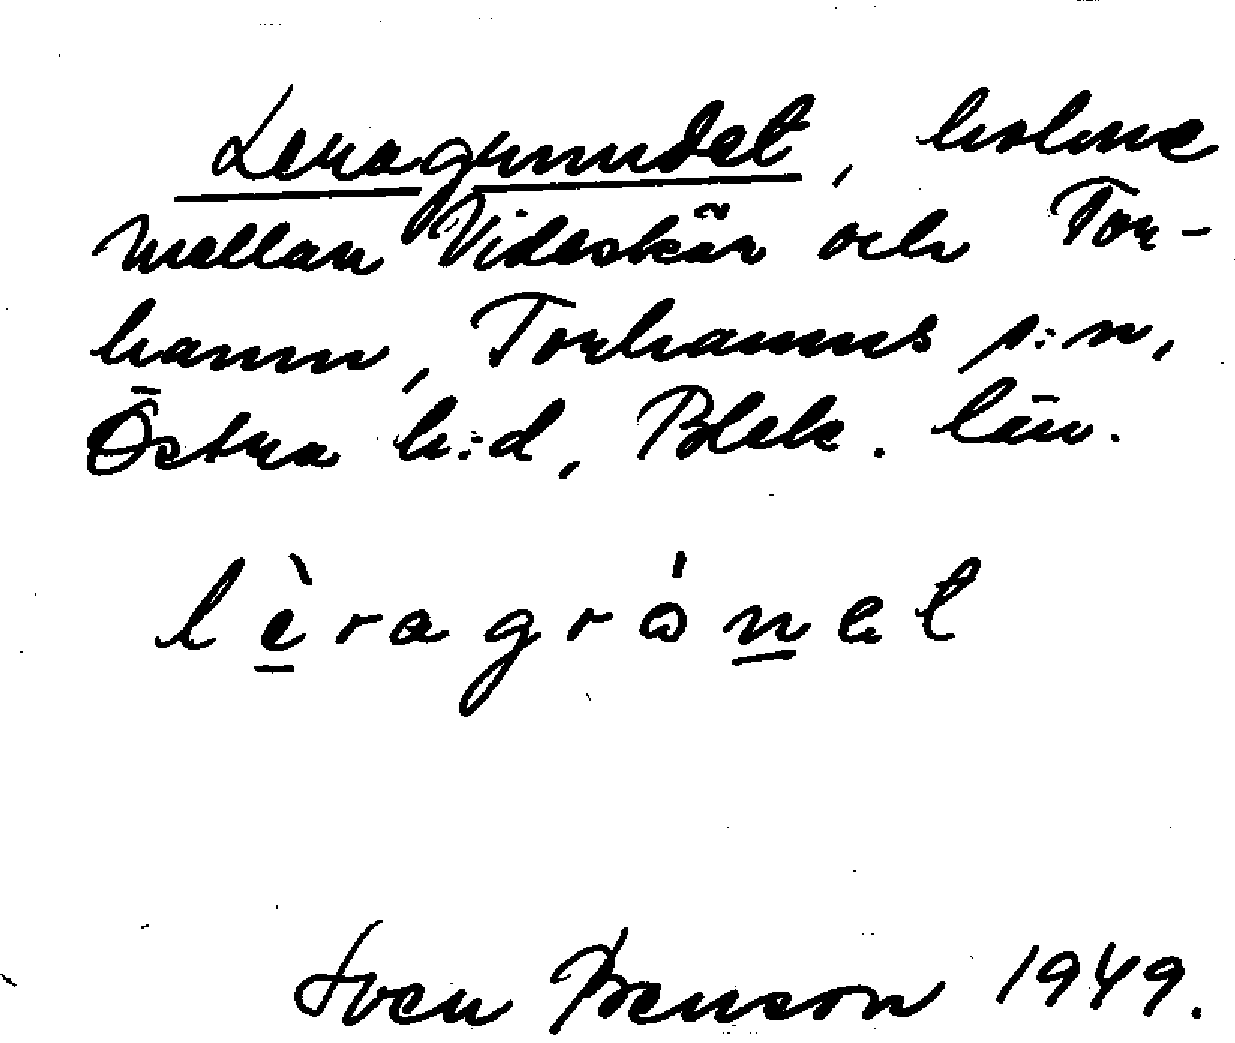 Leragrundet, holme
mellan Videskär och Tor-
hamn, Torhamns s:n,
Östra h:d, Blek. län.
lèragrònet
Sven Benson 1949.